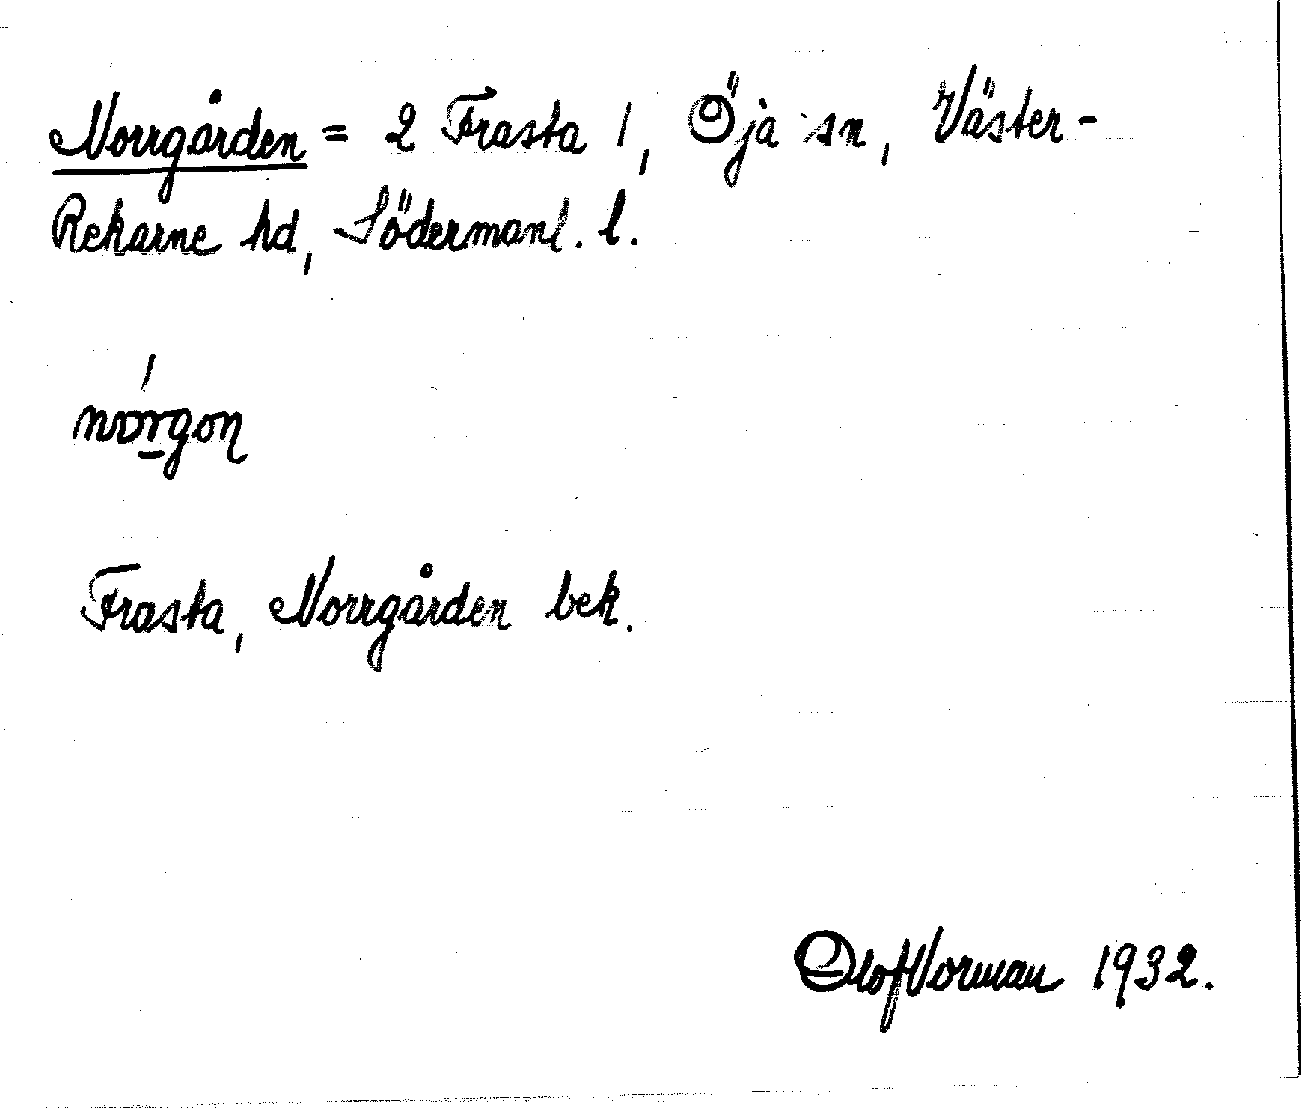 Norrgården = 2 Frasta 1, Öja sn, Väster-
Rekarne hd, Södermanl. l.
nórgon
Frasta, Norrgården bek.
Olof Norman 1932.